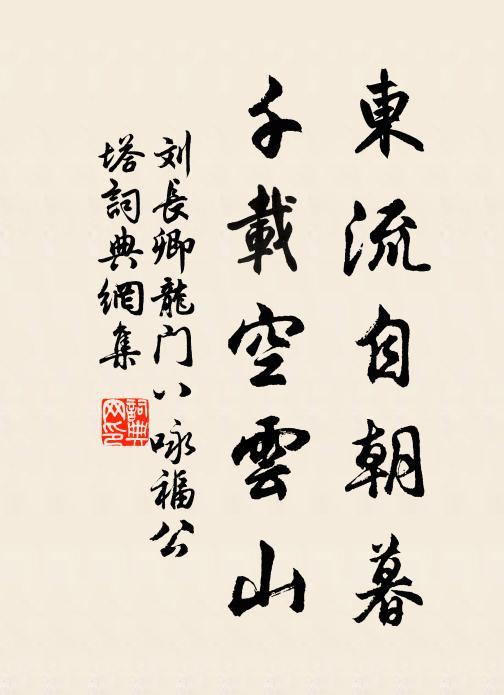 東流自朝暮
千載空雲山
刘長卿龍门八咏福公
塔詞典網集
詞典
网印